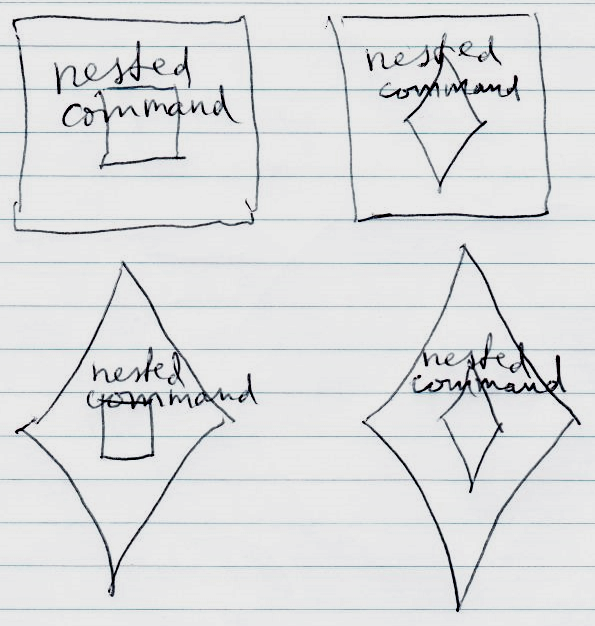 nested
command
nested
command
nested
command
nested
command